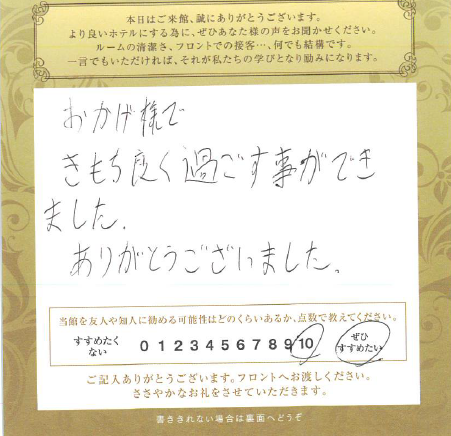 本日はご来館、誠にありがとうございます。
より良いホテルにする為に、ぜひあなた様の声をお聞かせください。
ルームの清潔さ、フロントでの接客…、何でも結構です。
一言でもいただければ、それが私たちの学びとなり励みになります。
おかげ様で
きもち良く過ごす事ができ
ました.
ありがとうございました。
当館を友人や知人に勧める可能性はどのくらいあるか、点数で教えてください。
すすめたくない 0 1 2 3 4 5 6 7 8 9 10 ぜひすすめたい
ご記入ありがとうございます。フロントへお渡しください。
ささやかなお礼をさせていただきます。
書ききれない場合は裏面へどうぞ